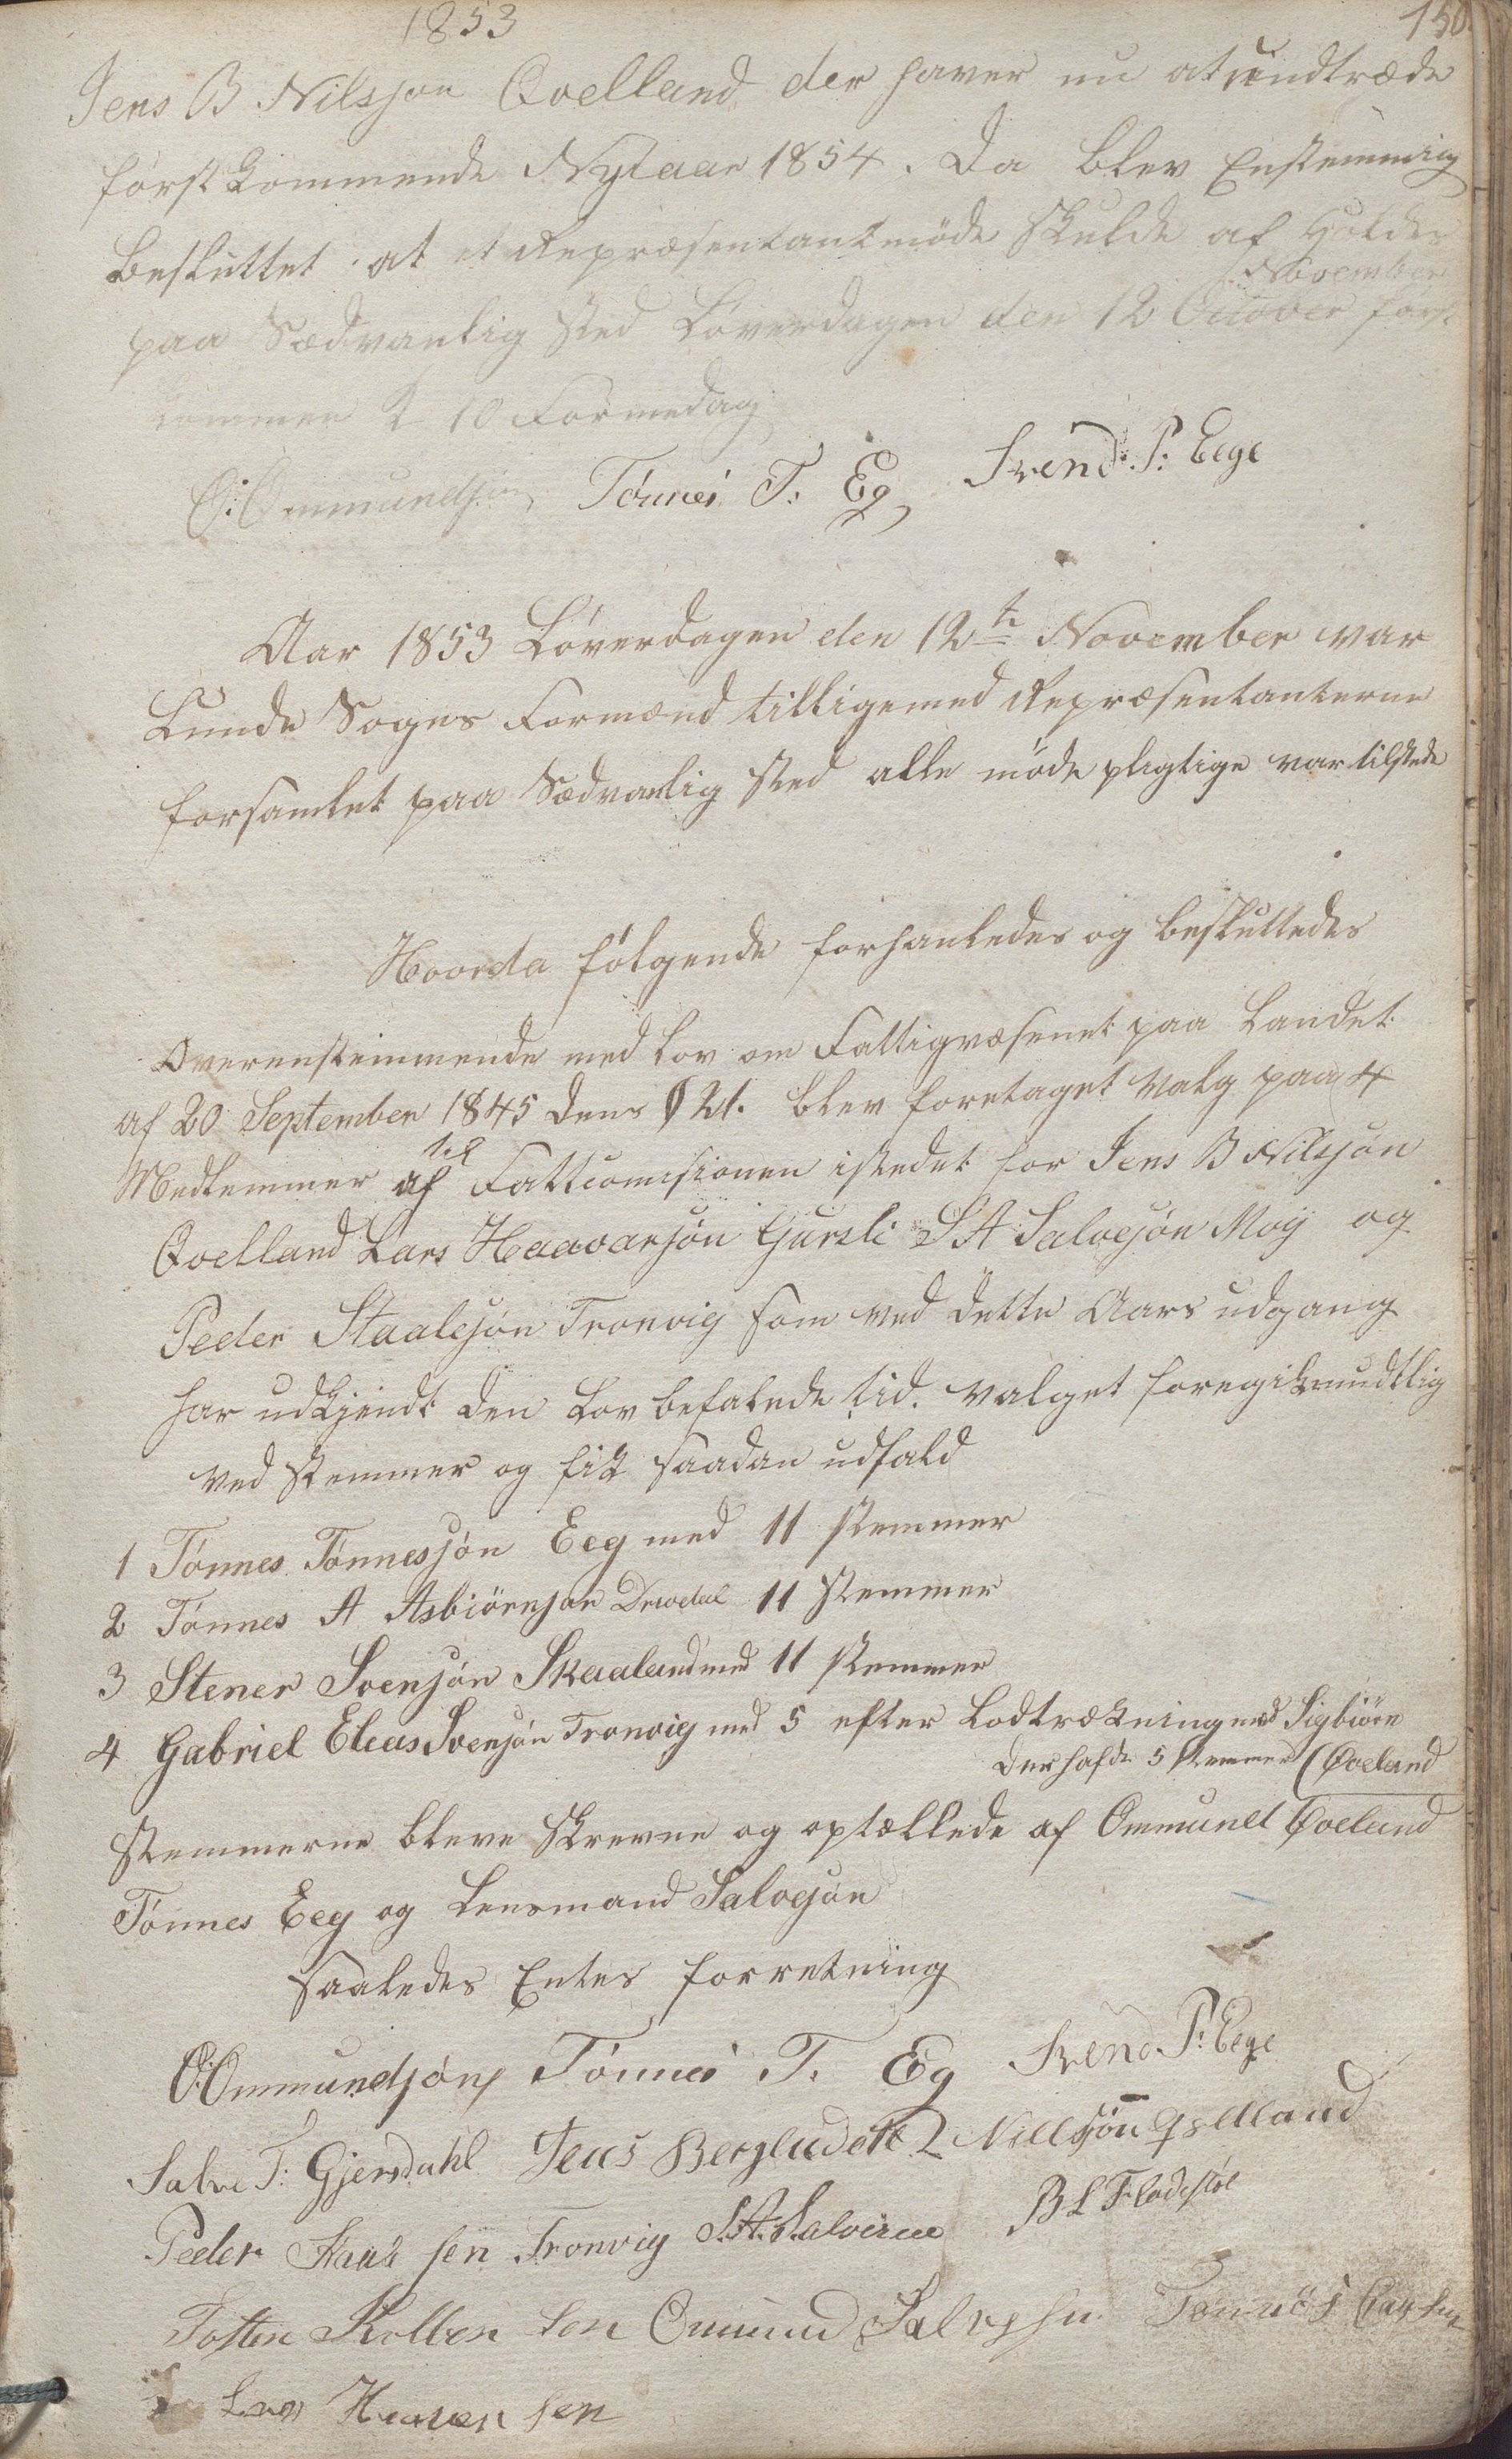 1853
150
Jens B Nilsjøn Qvelland der haver nu at undtræde
først kommende Nytaar 1854. Da blev Enstemmig
besluttet at et Repræsentantmøde skulde af Holdes
November
paa Sædvanlig sted Løverdagen den 12 October først
kommen k 10 Formedag
O: Ommundsøn Tönnes T. Eg Svend P: Eege
Aar 1853 Løverdagen den 12te November var
Lunde Sogns Formænd tilligemed Repræsentanterne
forsamlet paa Sædvanlig sted alle møde pligtige var tilstede
Hvorda følgende forhanledes og besluttedes
Overenstemmende med Lov om Fattigvæsenet paa Landet
af 20 September 1845 dens § 21. blev foretaget valg paa 4
til
Medlemmer af Fattcomisionen istedet for Jens B Nilsjøn
Qvelland Lars Haavarsjøn Gursli S A Salvesjøn Moij og
Peder Staalesjøn Tronvig som ved dette Aars udgang
har udtjendt den Lov befalede tid. valget foregik mundtlig
ved stemmer og fik saadan udfald
1 Tønnes Tønnesjøn Eeg med 11 stemmer
2 Tønnes A Asbiörnsjøn Drivdal 11 stemmer
3 Stener Svensjøn Skaaland med 11 stemmer
4 Gabriel Eleas Svensjøn Tronvig med 5 efter Lodtrækning med Sigbiörn
der hafde 5 stemmer (Qveland
stemmerne bleve skrevne og optællede af Ommund Qveland
Tønnes Eeg og Lensmand Salvesjøn
saaledes Entes forretning
O: Ommundsjøn Tönnes T. Eg Svend P: Eege
Salve T: Gjersdahl Jens Bergludett Nillsjön Qvelland
Peder Staals sen Tronvig S. A. Salvesen B L Fladstøl
Tosten Kolben sen Omund Salvesen Tönnes Carlsen
Lars Haaver sen